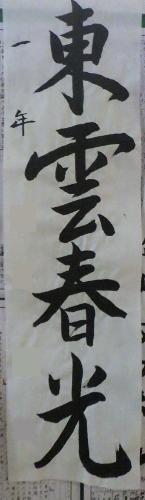 東雲春光
一年